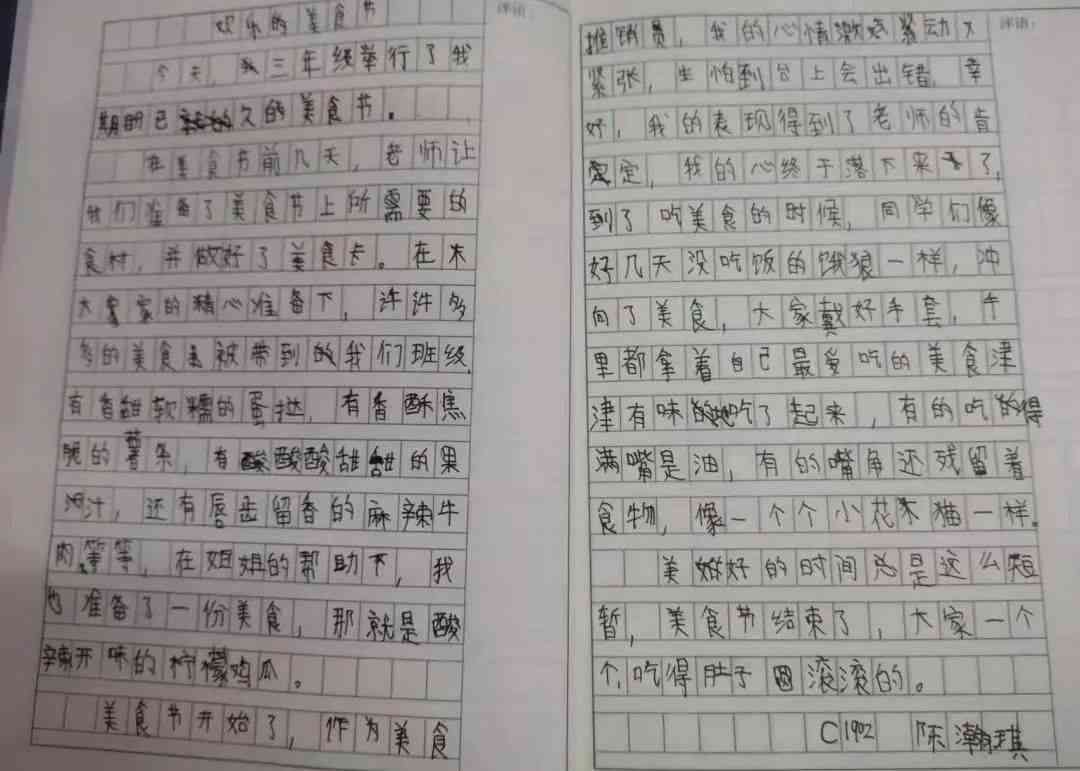 欢乐的美食节
评语：
今天，我三年级举行了我
期的已久的美食节。
在美食节前几天，老师让
我们准备了美食节上所需要的
食材，并做好了美食卡。在木
大家的精心准备下，许许多
多的美食被带到的我们班级，
有香甜软糯的蛋挞，有香酥焦
脆的薯条，有酸酸甜甜的果
汁，还有唇齿留香的麻辣牛
肉等等，在姐姐的帮助下，我
也准备了一份美食，那就是酸
辣开味的柠檬鸡瓜。
美食节开始了，作为美食
评语：
推销员，我的心情激动又
紧张，生怕到台上会出错，幸
好，我的表现得到了老师的肯
定，我的心终于落下来了，
到了吃美食的时候，同学们像
好几天没吃饭的饿狼一样，冲
向了美食，大家戴好手套，千
里都拿着自己最爱吃的美食津
津有味地吃了起来，有的吃得
满嘴是油，有的嘴角还残留着
食物，像一个个小花猫一样。
美好的时间总是这么短
暂，美食节结束了，大家一个
个吃得肚子滚滚的。
C1902 陈瀚琪